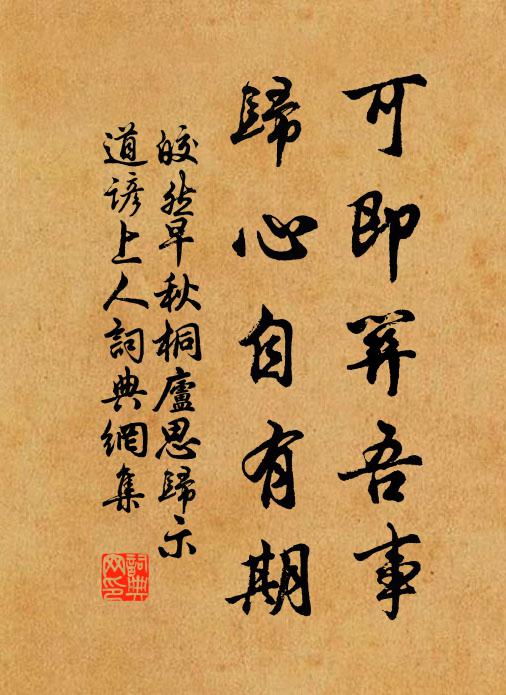 可即關吾事
歸心自有期
皎然早秋桐廬思歸示
道諺上人詞典網集
詞典
网印